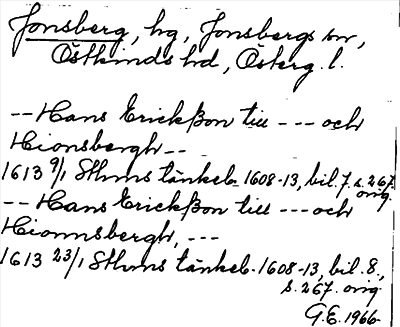 Jonsberg, hg, Jonsbergs sn,
Östkinds hd, Österg. l.
-- Hans Erickßon till --- och
Hionsbergh --
1613 9/1 Sthms tänkeb. 1608-13, bil. 7, s. 267.
orig.
-- Hans Erickßon till --- och
Hionnsbergh, ---
1613 23/1 Sthms tänkeb. 1608-13, bil. 8,
s. 267. orig.
G.E. 1966